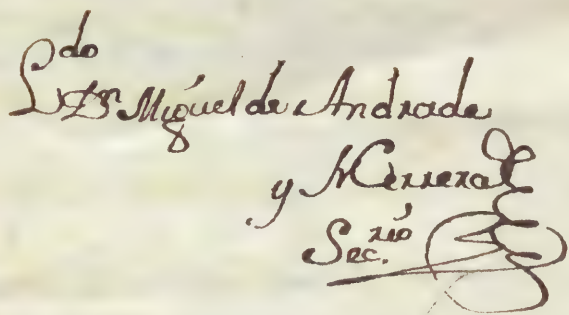 L^do
Dn Miguel de Andrade
y Herrera
Sec.^rio